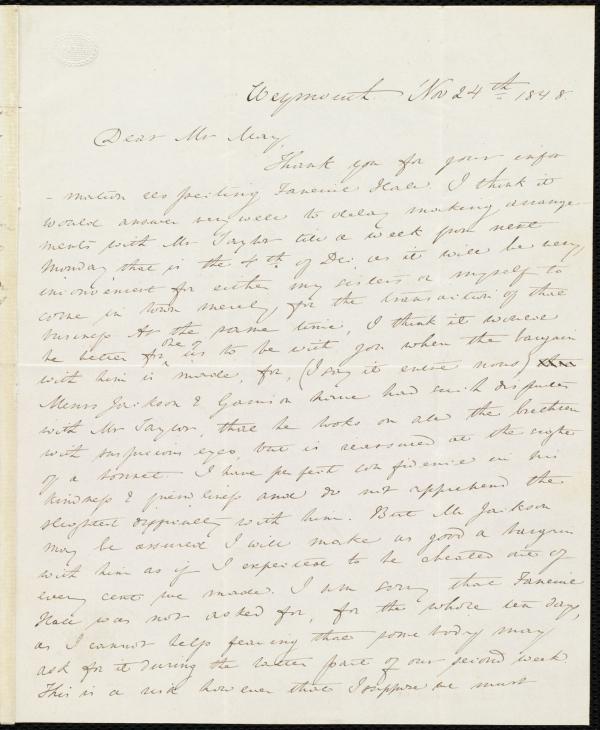 Weymouth Nov 24th 1848.
Dear Mr May,
Thank you for your infor
- mation respecting Faneuil Hall. I think it
would answer very well to delay making arrange-
ments with Mr Taylor till a week from next
Monday that is the 4th of De: as it will be very
inconvenient for either my sisters or myself to
come in town merely for the transaction of that
business At the same time, I think it would
be better for one of us to be with you when the bargain
with him is made, for, (I say it entre nous)
Messrs Jackson & Garrison have had such disputes
with Mr Taylor, that he looks on all the brethren
with suspicious eyes, but is reassured at the sight
of a bonnet. I have perfect confidence in his
kindness & friendliness and do not apprehend the
slightest difficulty with him. But Mr Jackson
may be assured I will make as good a bargain
with him as if I expected to be cheated out of
every cent we made. I am sorry that Faneuil
Hall was not asked for, for the whole ten days,
as I cannot help fearing that some body may
ask for it during the latter part of our second week.
This is a risk however that I suppose we must